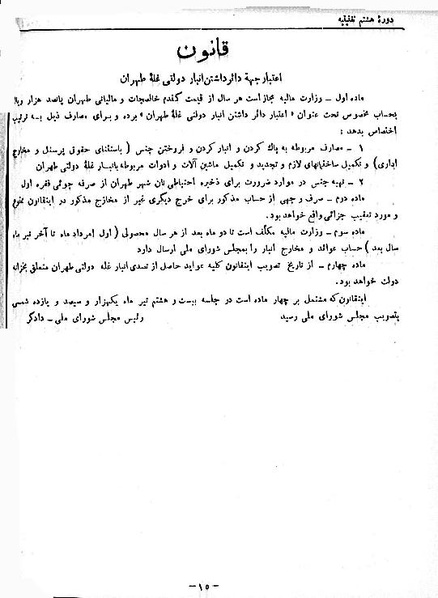 دورهٔ هشتم تقنینیه
قانون
اعتبار جهة دائر داشتن انبار دولتی غلهٔ طهران
ماده اول – وزارت مالیه مجاز است هر سال از قیمت گندم خالصجات و مالیاتی طهران پانصد هزار ریال
بحساب مخصوص تحت عنوان « اعتبار دائر داشتن انبار دولتی غلهٔ طهران » برده و برای مصارف ذیل بـه ترتیب
اختصاص بدهد :
۱ – مصارف مربوطه به پاك کردن و انبار کردن و فروختن جنس ( باستثنای حقوق پرسنل و مخارج
اداری ) و تکمیل ساختمانهای لازم و تجدید و تکمیل ماشین آلات و ادوات مربوطه بانبـار غلهٔ دولتی طهران
۲ – تهیه جنس در موارد ضرورت برای ذخیره احتیاطی نان شهر طهران از صرفه جوئی فقره اول
ماده دوم – صرف وجهی از حساب مذکور برای خرج دیگری غیر از مخارج مذکور در اینقانون ممنوع
و مورد تعقیب جزائی واقع خواهد بود.
ماده سوم – وزارت مالیه مکلف است تا دو ماه بعد از هر سال محصولی ( اول امرداد ماه تا آخر تیر ماه
سال بعد ) حساب عوائد و مخارج انبار را بمجلس شورای ملی ارسال دارد
ماده چهارم – از تاریخ تصویب اینقانون کلیه عواید حاصل از تصدی انبار غله دولتی طهران متعلق بخزانه
دولت خواهد بود.
اینقانون که مشتمل بر چهار ماده است در جلسه بیست و هشتم تیر ماه یکهزار و سیصد و یازده شمسی
بتصویب مجلس شورای ملی رسید رئیس مجلس شورای ملی – دادگر
– ۱۵ –